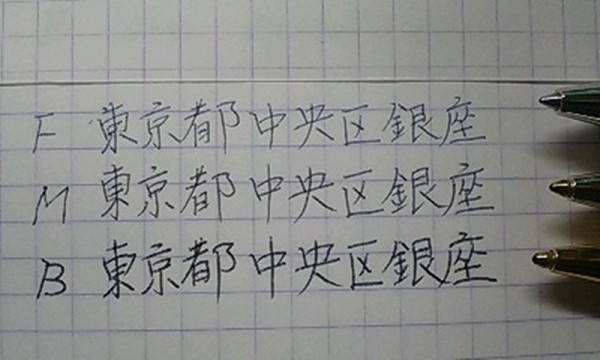 F 東京都中央区銀座
M 東京都中央区銀座
B 東京都中央区銀座